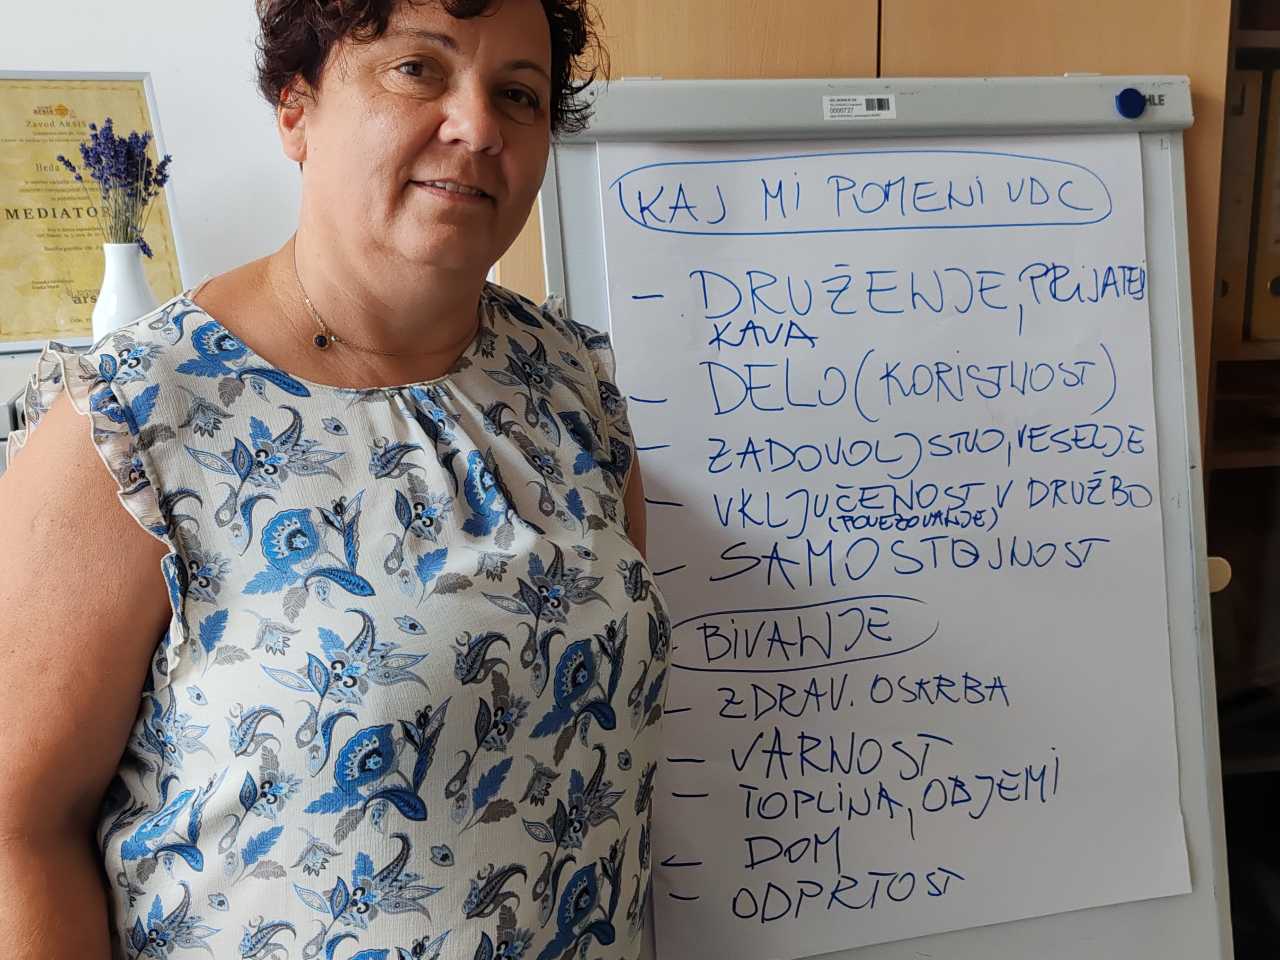 Zavod ARSIS
Heda
MEDIATOR
0000727
KAJ MI POMENI VDC
- DRUŽENJE, PRIJATELJI
KAVA
- DELO (KORISTNOST)
- ZADOVOLJSTVO, VESELJE
- VKLJUČENOST V DRUŽBO
(POVEZOVANJE)
- SAMOSTOJNOST
BIVANJE
- ZDRAV. OSKRBA
- VARNOST
- TOPLINA, OBJEMI
- DOM
- ODPRTOST